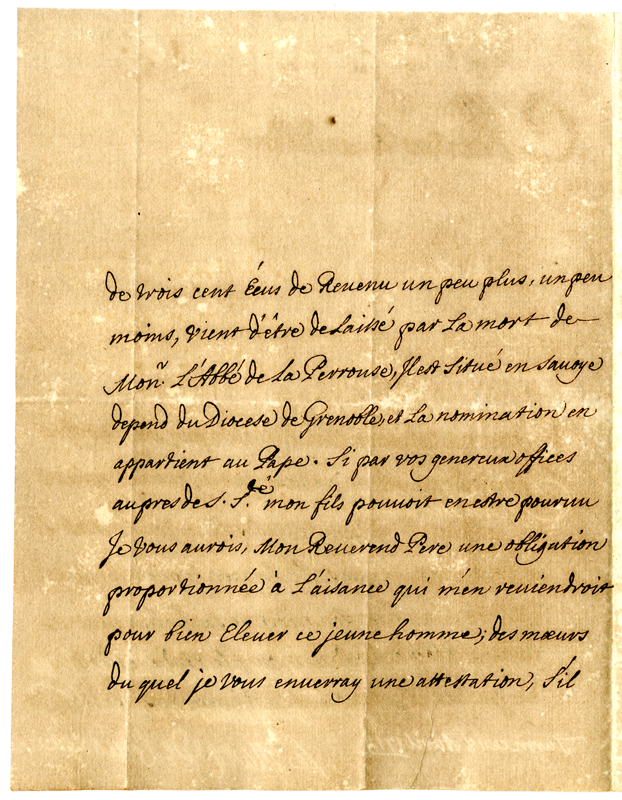 de trois cent Écus de Revenu un peu plus, un peu
moins, vient d'être delaissé par La mort de
Monr. L'Abbé de La Perrouse, Il est situé en savoye
depend du Diocese de Grenoble, et La nomination en
appartient au Pape. Si par vos genereux offices
aupres de S. S.té mon fils pouvoit en estre pourvu
Je vous aurois, Mon Reverend Pere une obligation
proportionnée à L'aisance qui m'en reviendroit
pour bien Elever ce jeune homme; des mœurs
du quel je vous enverray une attestation, s'il